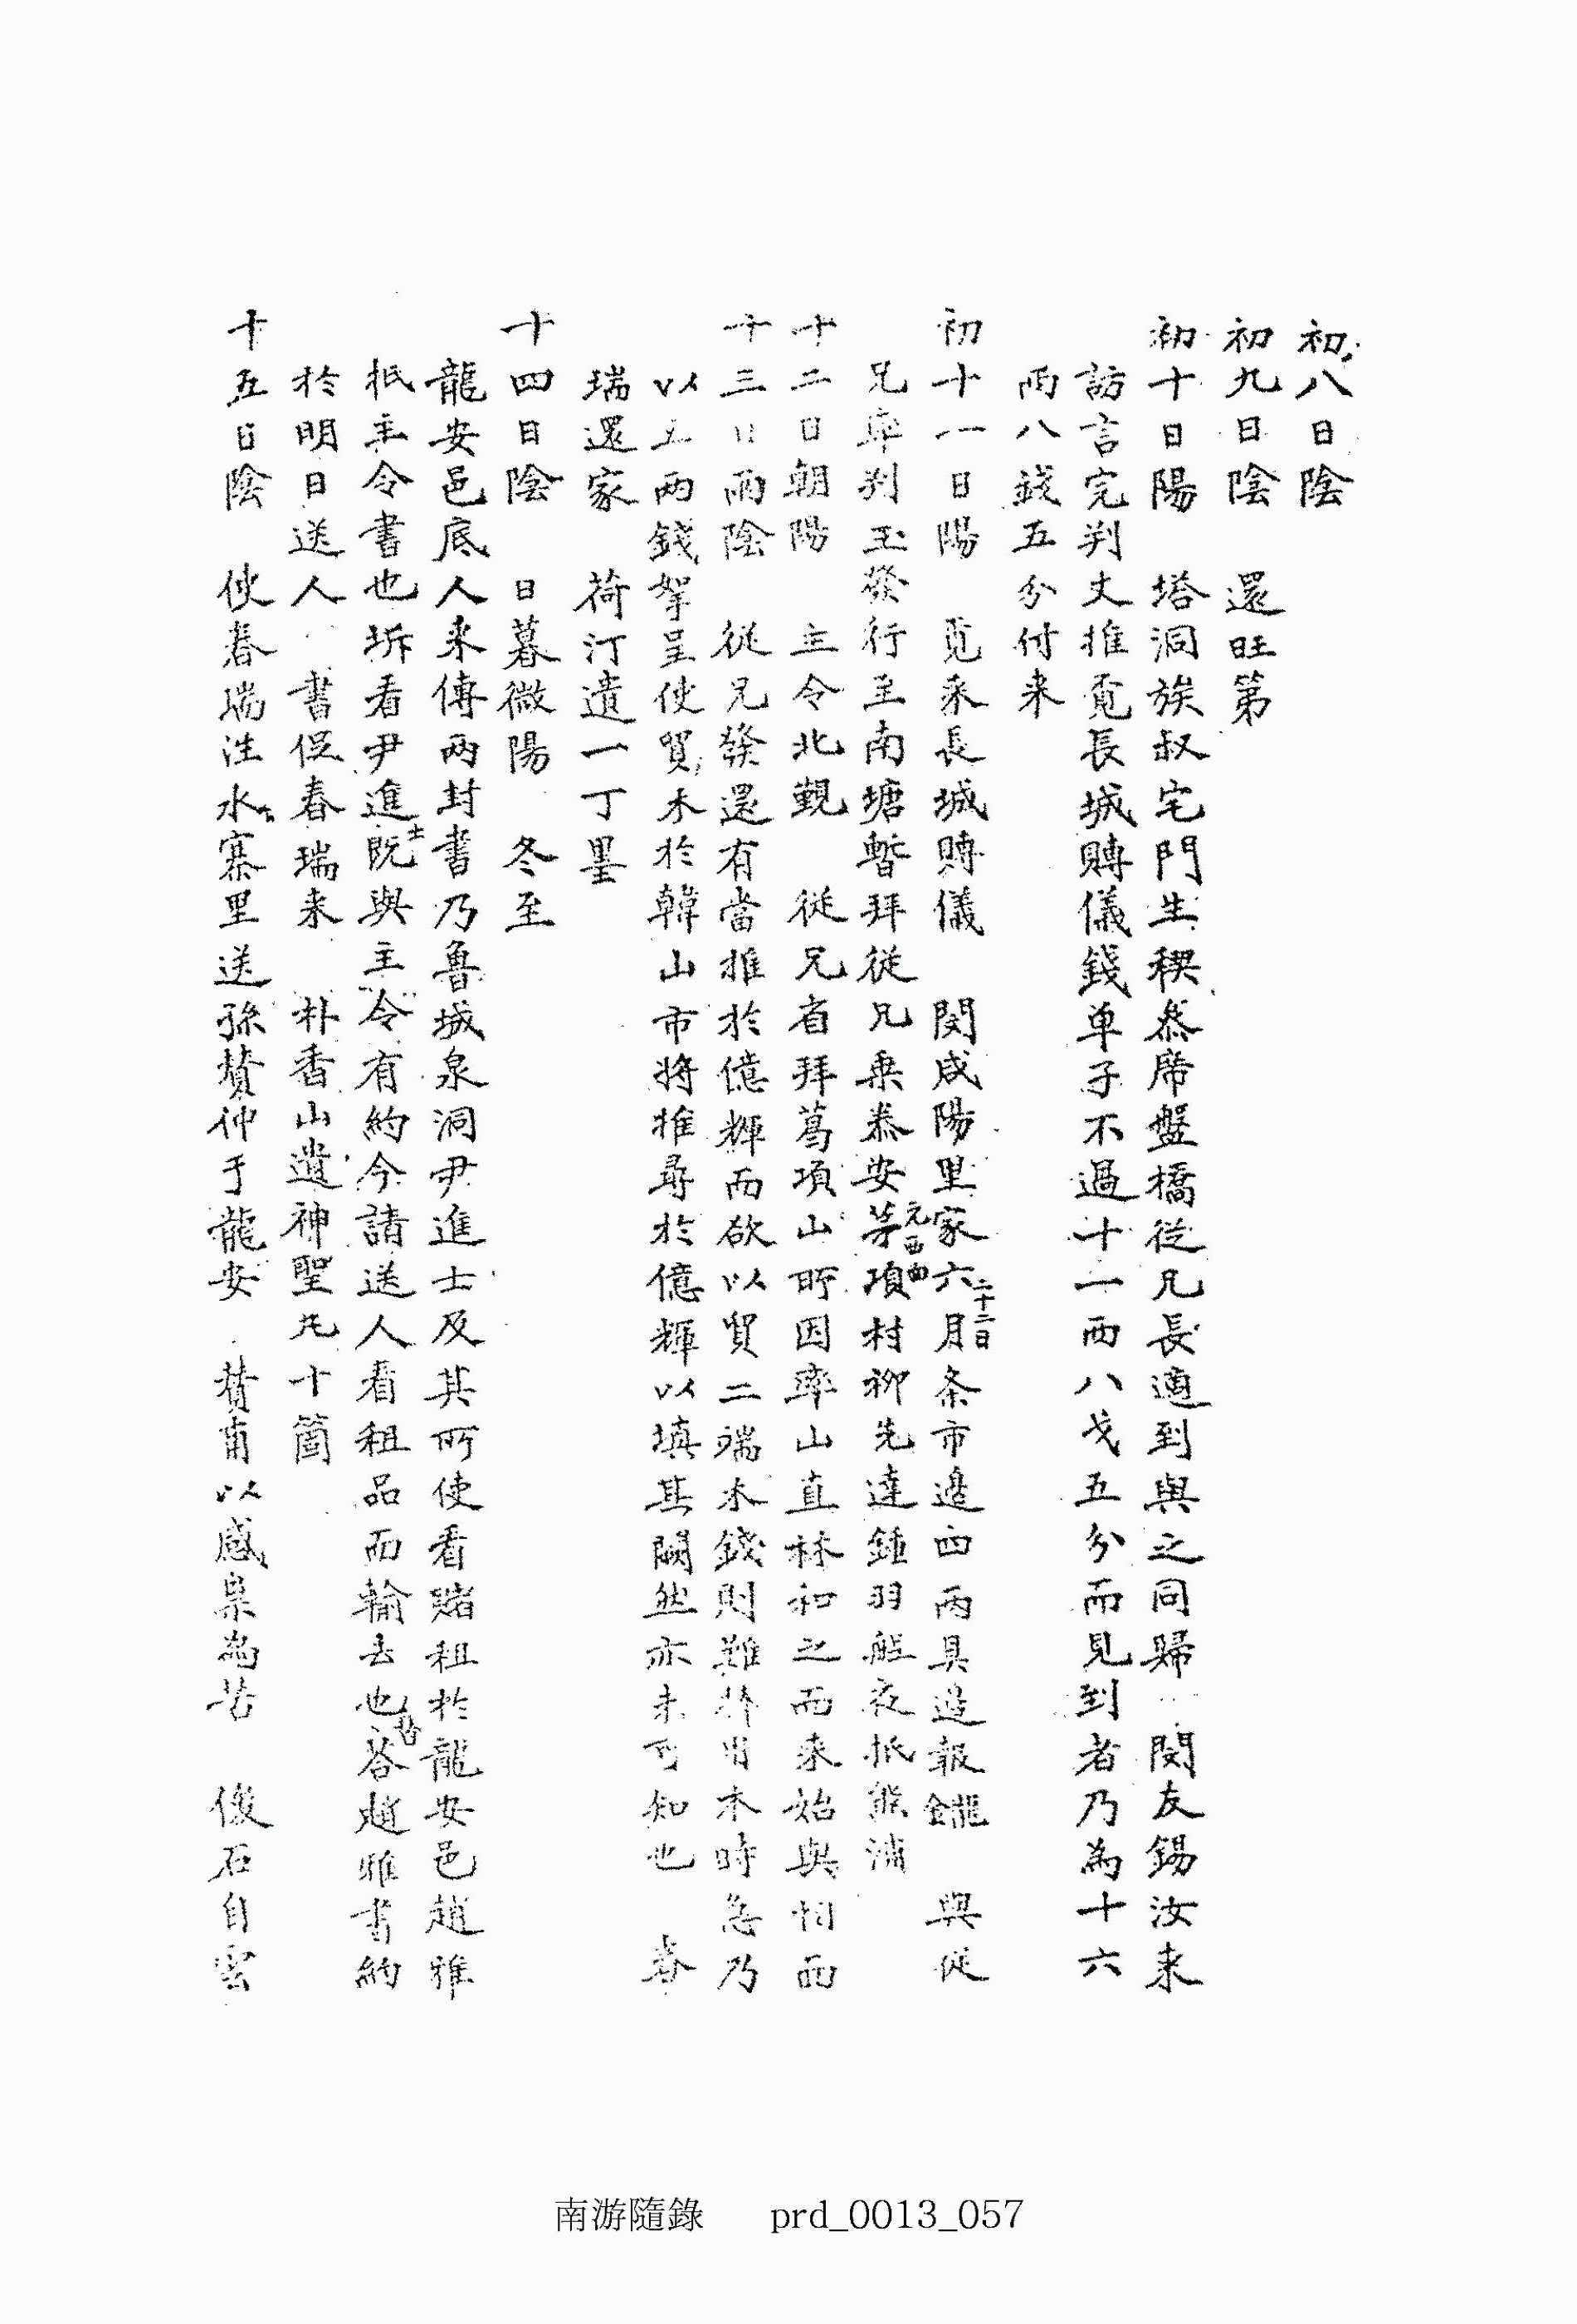 初八日陰
初九日陰 還旺第
初十日陽 塔洞族叔宅門生稧叅席盤橋從兄長適到與之同歸 閔友錫汝来
訪言完判丈推覔長城賻儀錢单子不過十一两八戈五分而見到者乃為十六
両八錢五分付来
初十一日陽 覔来長城賻儀 閔咸陽里家六二十二日月条市邉四両具邉報 與従
兄率判玉發行至南塘暫拜従兄乗泰安元西面茅項村柳先達鍾羽船夜抵熊浦
十二日朝陽 主令北覲 従兄省拜葛項山所因率山直林和之而来始與相面
十三日雨陰 從兄發還有當推於億輝而欲以貿二端木錢則難於用木時急乃
以五两錢挐呈使貿木於韓山市将推尋於億輝以填其闕然亦未可知也 春
瑞還家 荷汀遺一丁墨
十四日陰 日暮微陽 冬至
龍安邑底人来傳两封書乃魯城泉洞尹進士及其所使看賭租於龍安邑趙雅
抵主令書也坼看尹進士既與主令有約今請送人看租品而輸去也答趙雅書約
於明日送人 書促春瑞来 朴香山遺神聖丸十箇
十五日陰 使春瑞注水寨里送孫賛仲于龍安 賛甫以感祟為苦 俊石自雲
南游隨錄 prd_0013_057